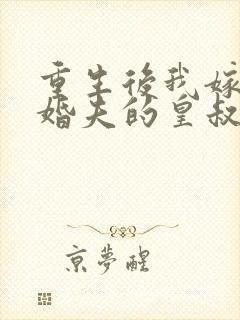 重生後我嫁
婚夫的皇叔
京夢醒